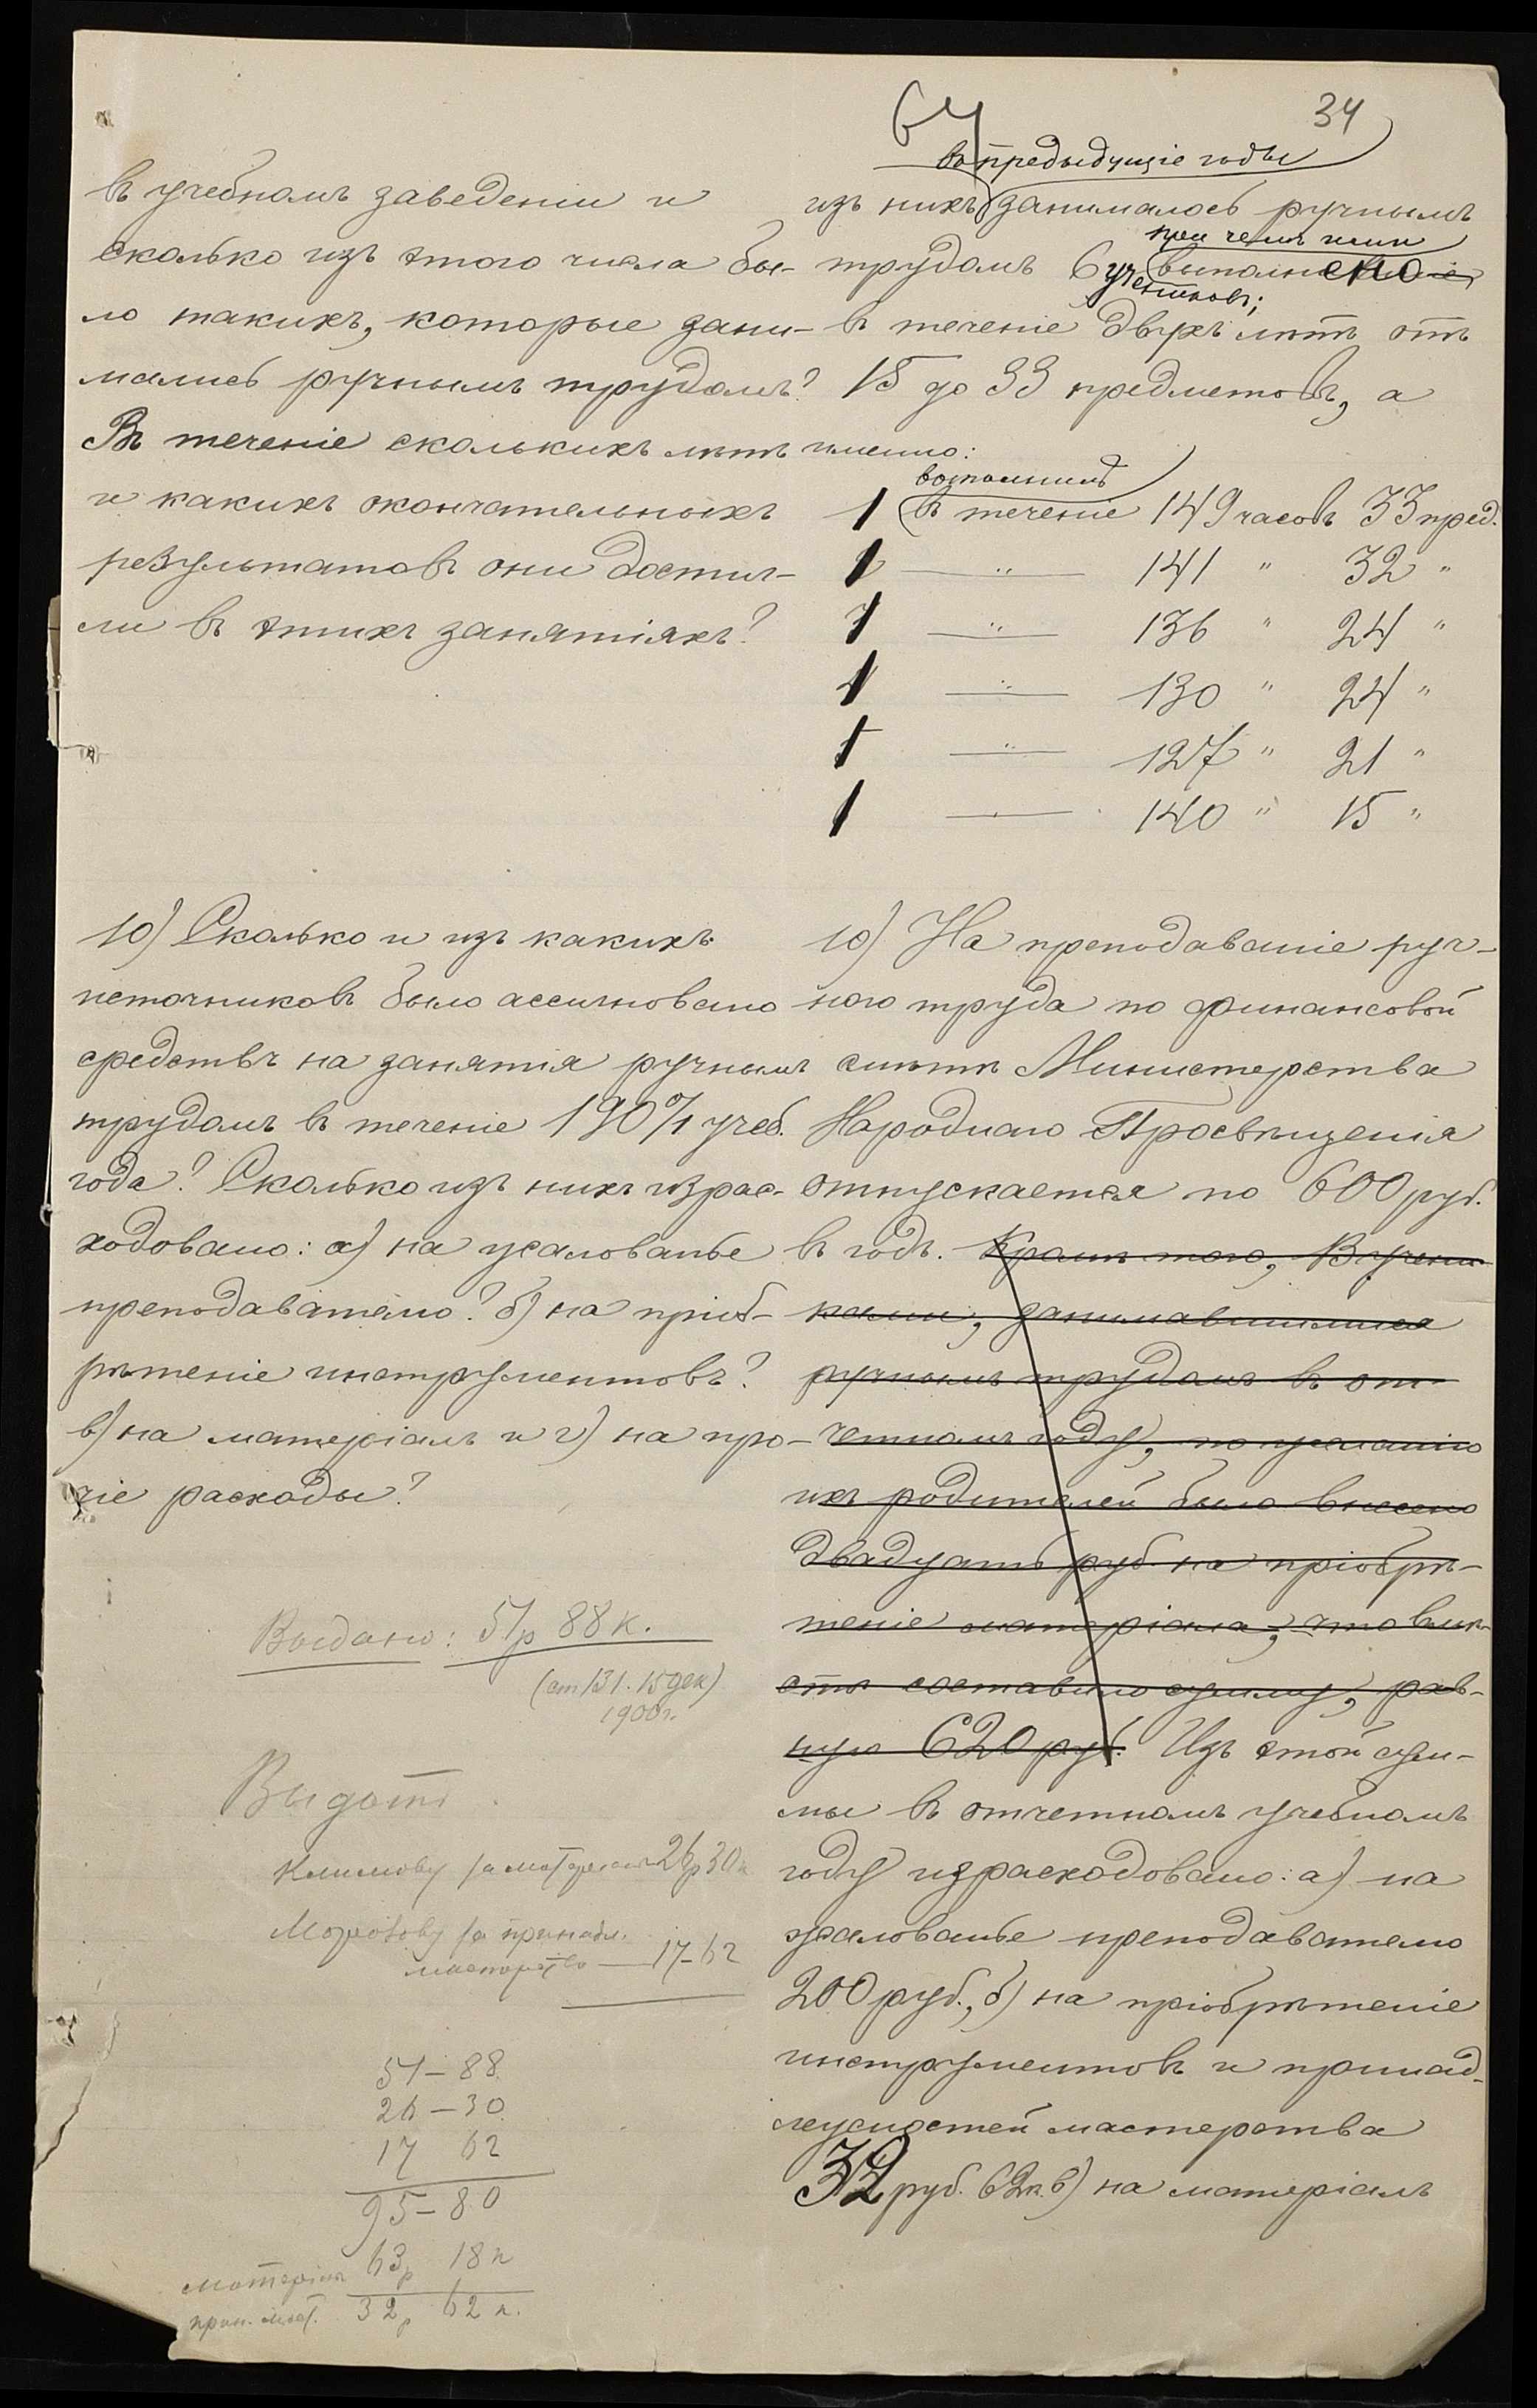 64
34
въ учебномъ заведеніи и
сколько изъ этого числа бы-
ло такихъ, которые зани-
мались ручнымъ трудомъ?
Въ теченіе сколькихъ лѣтъ
и какихъ окончательныхъ
результатовъ они достиг-
ли въ этихъ занятіяхъ?
въ предыдущіе годы
изъ нихъ занималось ручнымъ
при чемъ ими
трудомъ 6 учениковъ; выполнено
въ теченіе двухъ лѣтъ отъ
15 до 33 предметовъ, а
именно:
выполнилъ
1 въ теченіе 149 часовъ 33 пред.
1 — " — 141 " 32 "
1 — " — 136 " 24 "
1 — " — 130 " 24 "
1 — " — 127 " 21 "
1 — " — 140 " 15 "
10) Сколько и изъ какихъ
источниковъ было ассигновано
средствъ на занятія ручнымъ
трудомъ въ теченіе 190 0/1 учеб.
года? Сколько изъ нихъ израс-
ходовано: а) на жалованье
преподавателю? б) на пріоб-
рѣтеніе инструментовъ?
в) на матеріалъ и г) на про-
чіе расходы?
10) На преподаваніе руч-
ного труда по финансовой
смѣтѣ Министерства
Народнаго Просвѣщенія
отпускается по 600 руб.
въ годъ. Кромѣ того, учени-
ками, занимавшимися
ручнымъ трудомъ въ от-
четномъ году, по желанію
ихъ родителей было внесено
двадцать руб. на пріобрѣ-
теніе матеріала, что вмѣ-
стѣ составило сумму, рав-
ную 620 руб. Изъ этой сум-
мы въ отчетномъ учебномъ
году израсходовано: а) на
жалованье преподавателю
200 руб., б) на пріобрѣтеніе
инструментовъ и принад-
лежностей мастерства
32 руб. 62 к. в) на матеріалъ
Выдано: 51 р 88 к.
(от 131. 15 дек)
1900 г.
Выдать
Климову за матеріалъ 26 р 30 к
Морозову за принадл.
мастерства — 17 - 62
51 — 88
26 — 30
17 62
95 — 80
матеріал 63 р 18 к
прин. маст. 32 р 62 к.